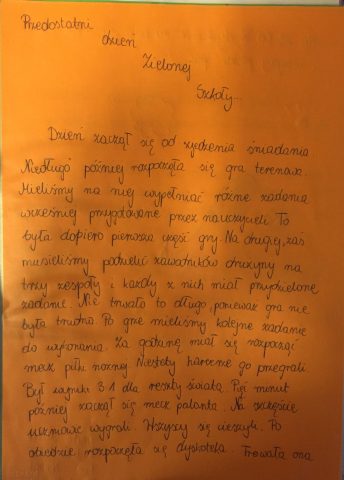 Przedostatni
dzień
Zielonej
Szkoły...
Dzień zaczął się od zjedzenia śniadania
Niedługo później rozpoczęła się gra terenowa.
Mieliśmy na niej wypełniać różne zadania
wcześniej przygotowane przez nauczycieli To
była dopiero pierwsza część gry. Na drugiej, zaś
musieliśmy podzielić zawodników drużyny na
trzy zespoły i każdy z nich miał przydzielone
zadanie. Nie trwało to długo, ponieważ gra nie
była trudna. Po grze mieliśmy kolejne zadanie
do wykonania. Za godzinę miał się rozpocząć
mecz piłki nożnej Niestety harcerze go przegrali
Był wynik 3:1 dla reszty świata. Pięć minut
później zaczął się mecz palanta. Na szczęście
uczniowie wygrali. Wszyscy się cieszyli. Po
obiedzie rozpoczęła się dyskoteka. Trwała ona